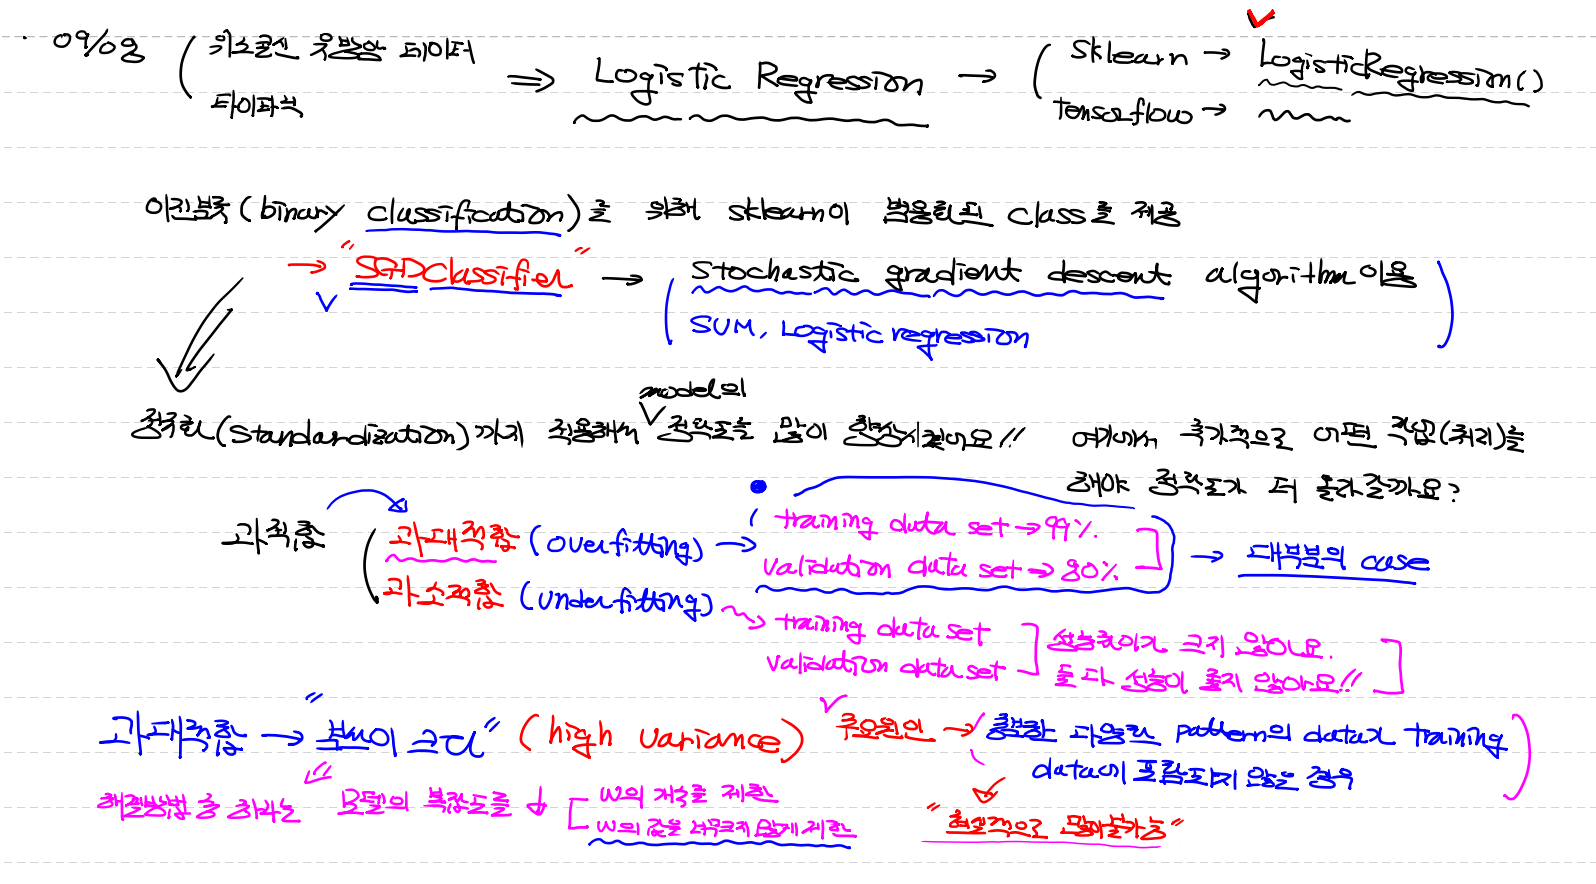 09/08 위스콘신 유방암 데이터 ⇒ Logistic Regression → sklearn → LogisticRegression()
타이타닉 tensorflow →
이진분류(binary classification)를 위해 sklearn이 범용화된 class를 제공
→ "SGDClassifier" → Stochastic gradient descent algorithm 이용
SVM, Logistic regression
model의
정규화(standardization)까지 적용해서 정확도를 많이 향상시켰어요!! 여기에서 추가적으로 어떤 작업(처리)을
해야 정확도가 더 올라갈까요?
과적합 과대적합 (overfitting) → training data set → 99% → 대부분의 case
validation data set → 80%
과소적합 (underfitting)
training data set 성능차이가 크지 않아요.
validation data set 둘 다 성능이 좋지 않아요!!
과대적합 → "분산이 크다" (high variance) 주요원인 → 충분한 다양한 pattern의 data가 training
data에 포함되지 않은 경우
해결방법 중 하나는 모델의 복잡도를 ↓ w의 개수를 제한
w의 값을 너무크지 않게 제한
"현실적으로 불가능"